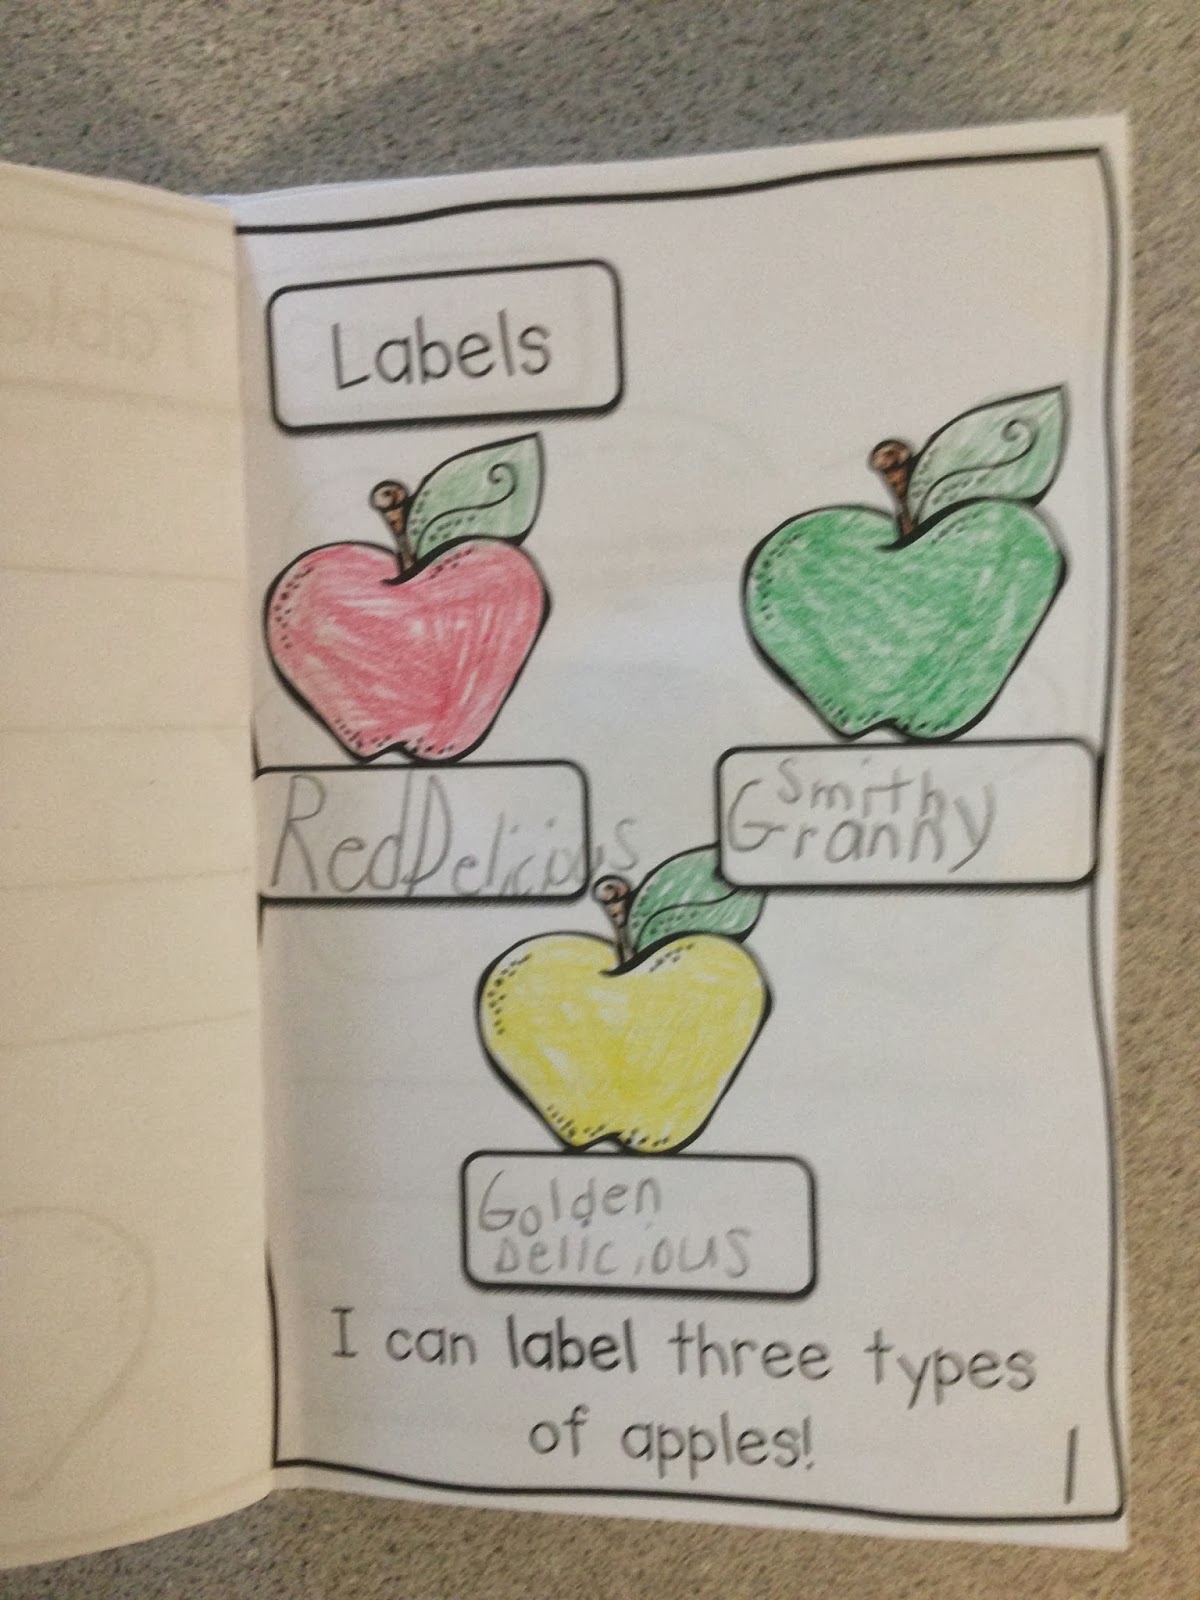 Labels
RedDelicious
Smith
Granny
Golden
Delicious
I can label three types
of apples!
1